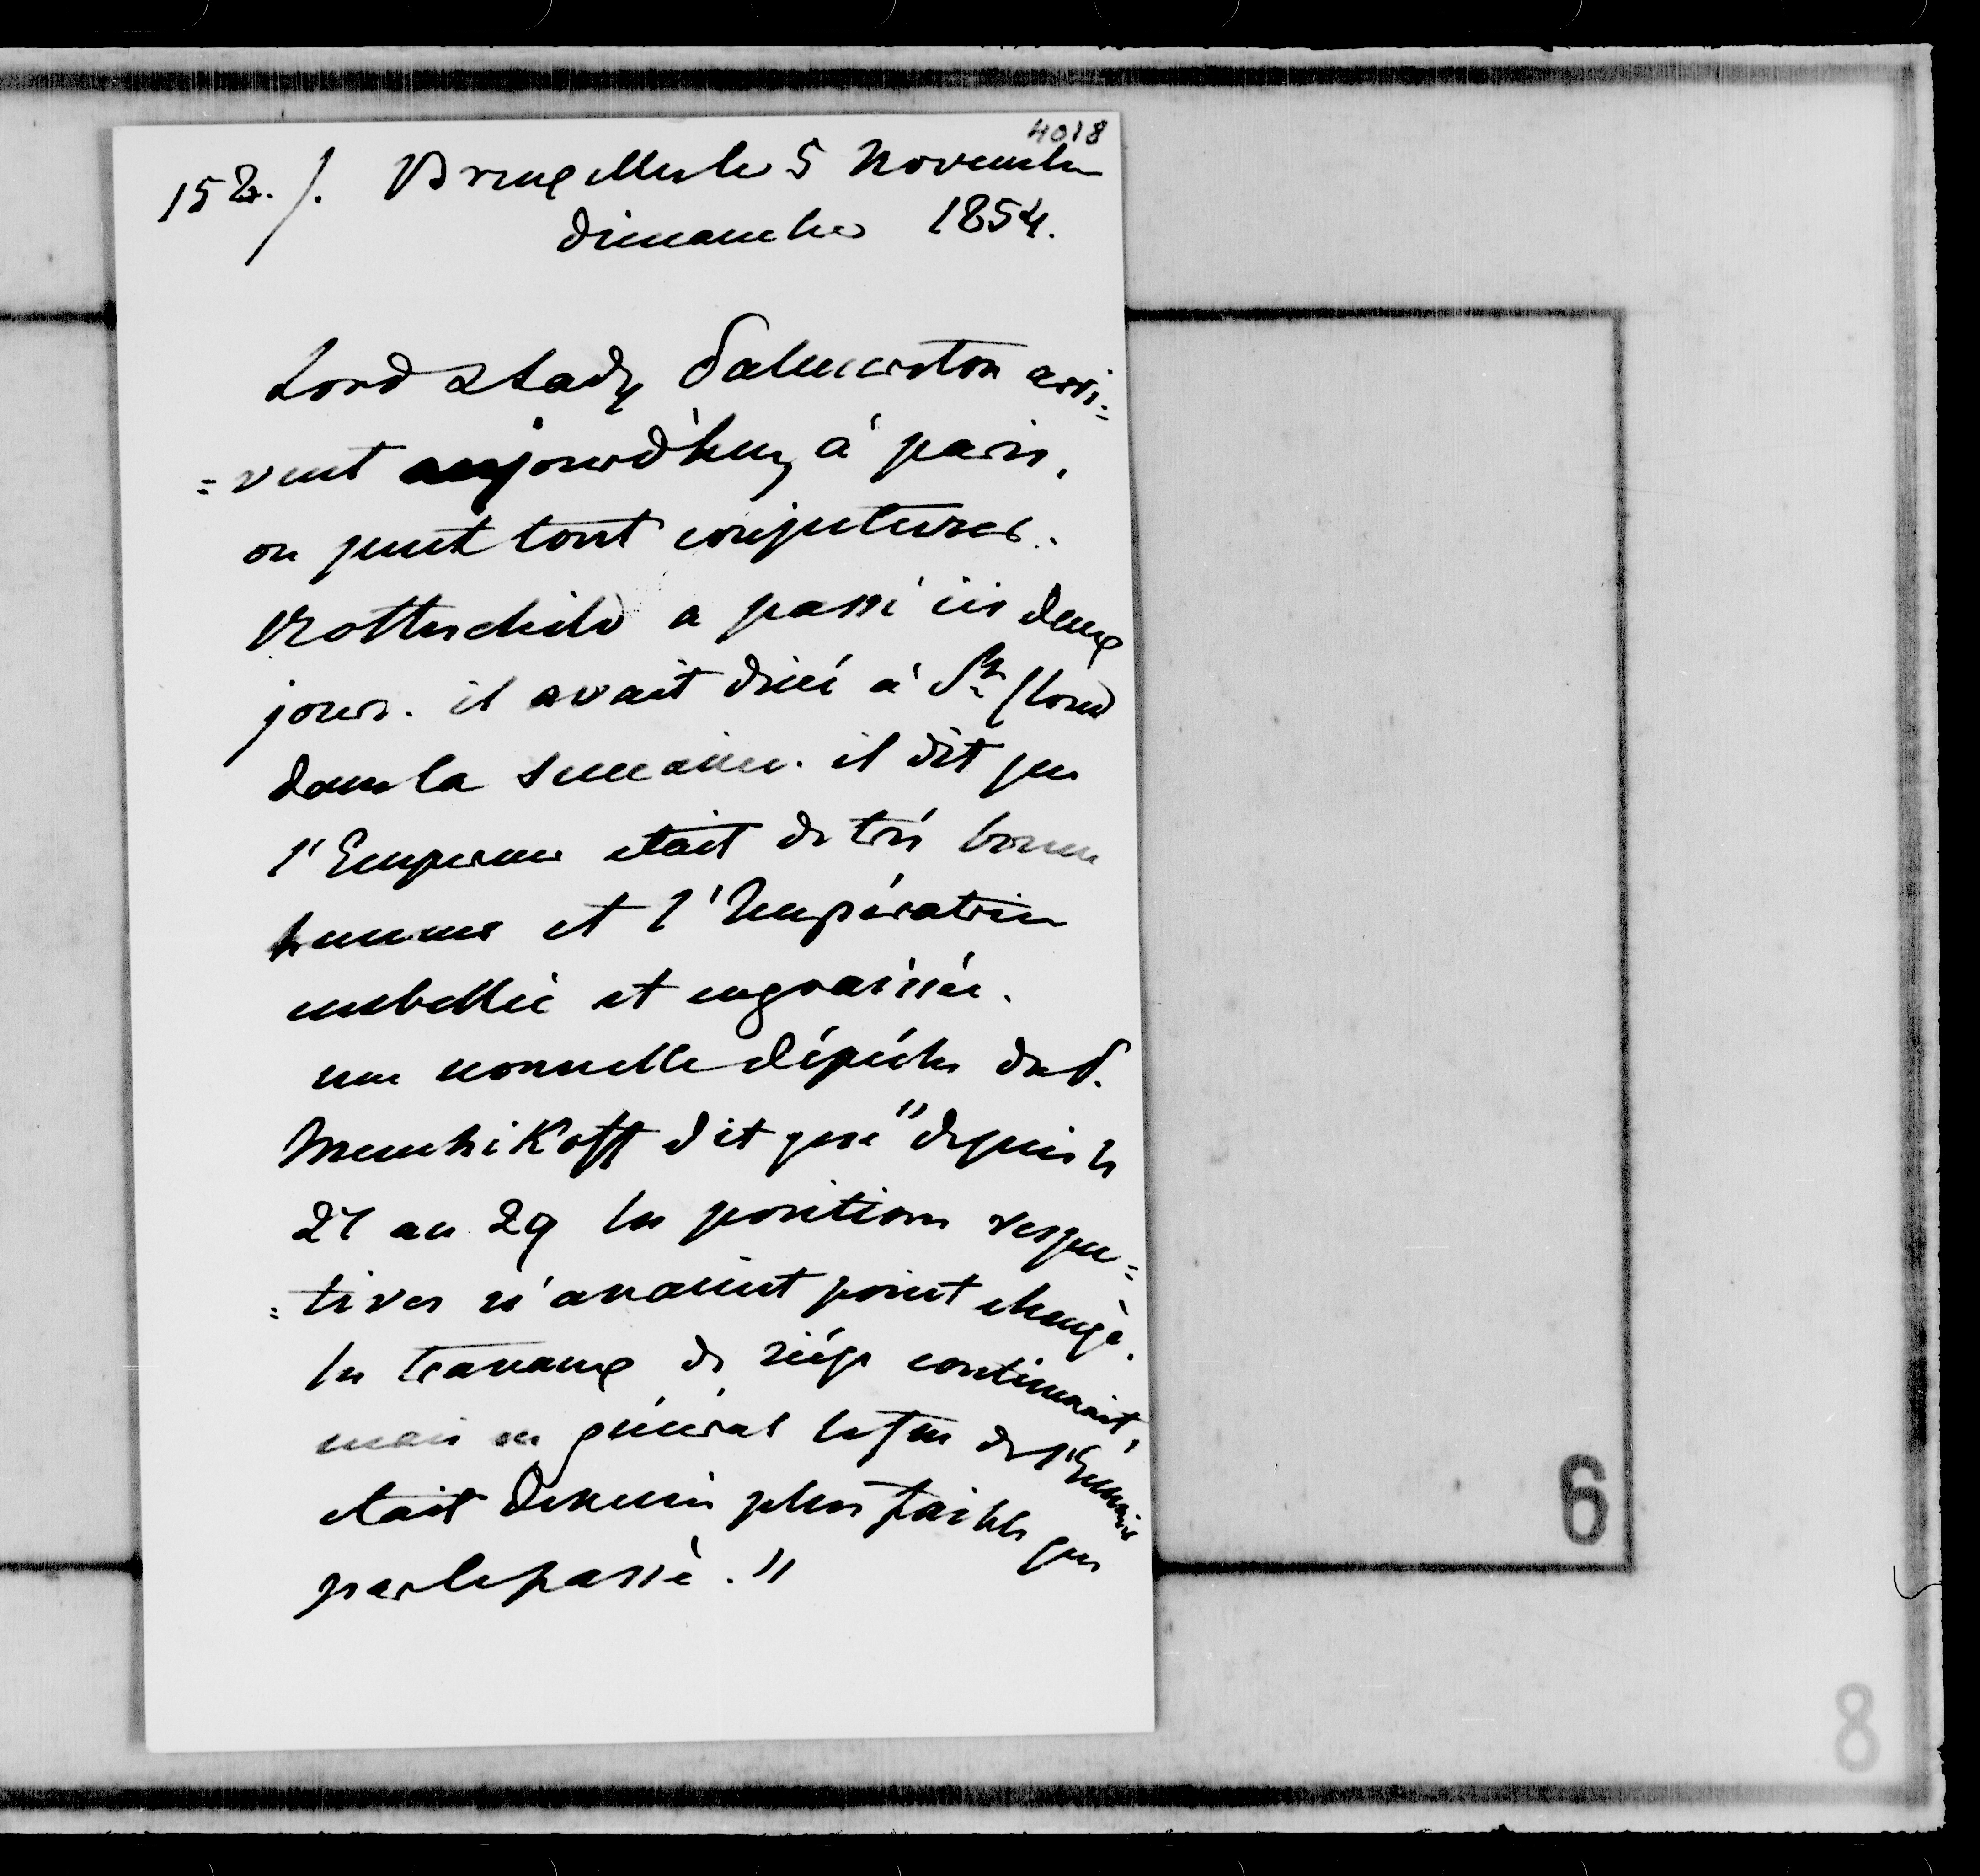 4018
152./. Bruxelles le 5 Novembre
dimanche 1854.
Lord & Lady Palmerston arri=
=vent aujourd'huy à paris,
on peut tout conjecturer.
Rottschild a passé ici deux
jours. il avait diné à St Cloud
dans la semaine. il dit que
l'Empereur etait de très bonne
humeur et l'Impératrice
embellie et engraissée.
une nouvelle dépéche du P.
Menchikoff dit que "depuis le
27 au 29 les positions respec=
=tives n'avaient point changé.
les travaux de siége continuait,
mais en général le feu de l'Ennemi
etait devenu plus faible que
par le passé."
6
8